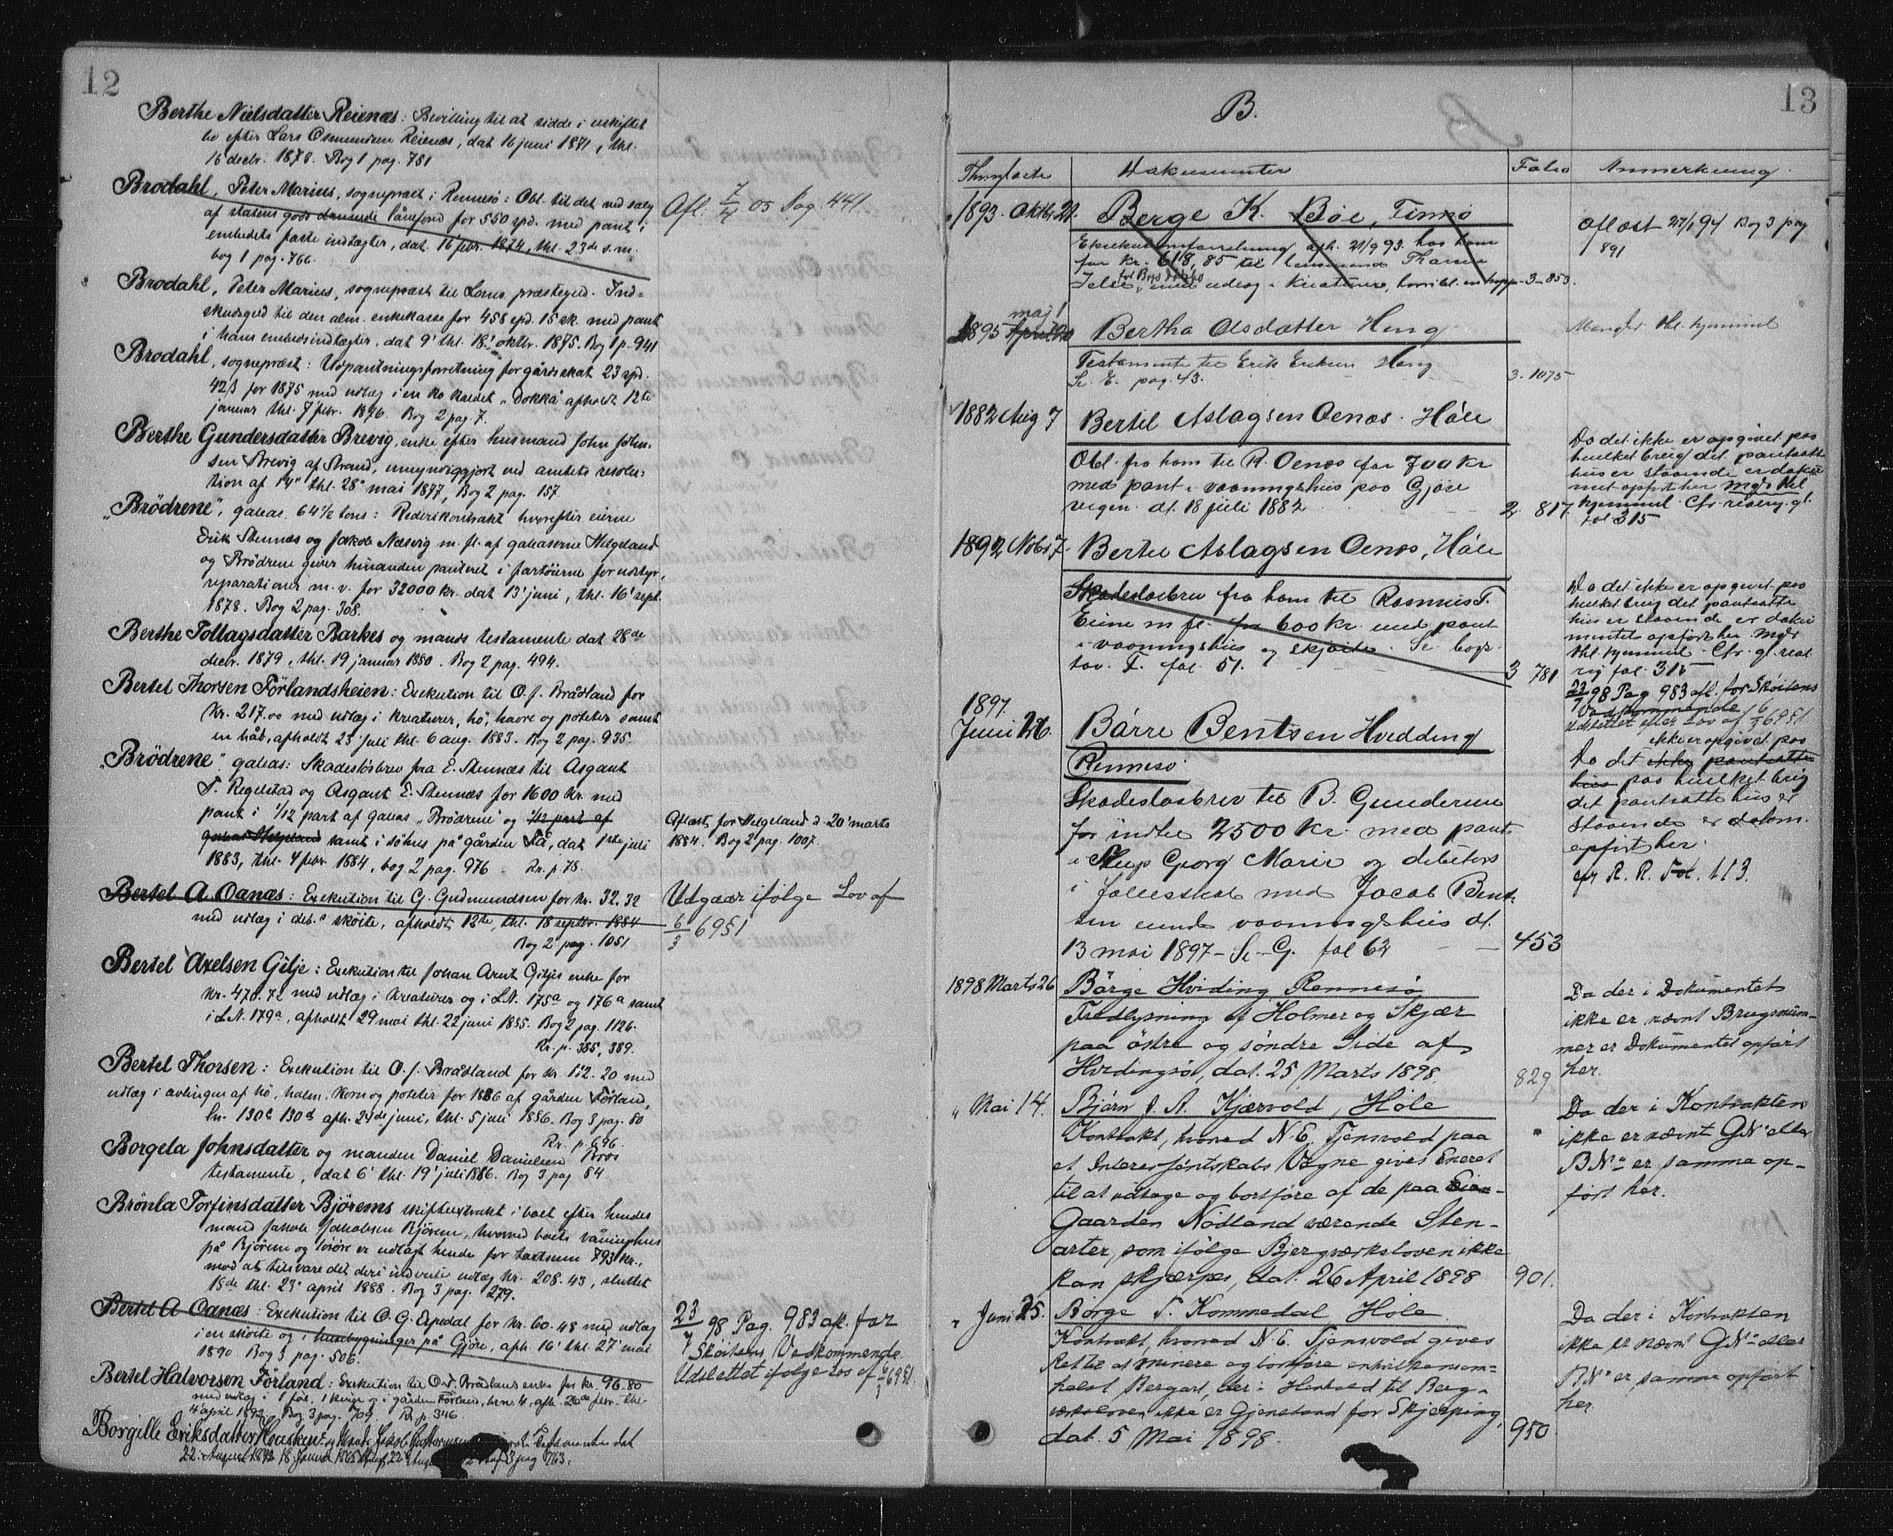 12
Berthe Nielsdatter Reienæs: Bevilling til at sidde i uskiftet
bo efter Lars Osmundsen Reienæs, dat 16 juni 1871, thl.
16 decbr. 1878. Bog 1 pag. 781
Brodahl, Peter Marius, sognepræst i Rennesø: Obl. til det ved salg
af statens gods dannede lånefond for 550 spd. med pant i
embedets faste indtægter, dat. 16' febr. 1874, thl. 23de s.m.
bog 1 pag. 766.
Afl. 7/4 05 Pag. 441.
Brodahl, Peter Marius, sognepræst til Loms præstegjd. Ind=
skudsgjd til den alm. enkekasse for 458 spd. 15 sk. med pant
i hans embedsindtægter, dat 9' thl. 18' oktbr. 1875. Bog 1 p. 941
Brodahl, sognepræst: Udpantningsforretning for gårdsskat 23 spd.
42ß for 1875 med udlæg i en ko kaldet „Dokka" afholdt 12te
januar thl. 7' febr. 1876. Bog 2 pag. 7.
Berthe Gundersdatter Brevig, enke efter husmand John John-
sen Brevig af Strand, umyndiggjort ved amtets resolu-
tion af 14" thl. 28" mai 1877, Bog 2 pag. 157.
„Brödrene", galeas. 64 1/2 tons: Rederikontrakt hvorefter eierne
Erik Stennæs og Jakob Næsvig m. fl. af galeaserne Helgeland
og Brödrene giver hinanden panteret i fartöierne for udstyr,
reparationer m. v. for 32000 kr. dat 13' juni, thl. 16' sept.
1878. Bog 2 pag. 308.
Berthe Tollagsdatter Barkes og mands testamente dat 28de
decbr. 1879, thl. 19 januar 1880. Bog 2 pag. 494.
Bertel Thorsen Förlandsheien: Exekution til O. J. Brådland for
kr. 217.00 med udlæg i kreaturer, hö, havre og poteter samt
en båd, afholdt 23 juli thl. 6 aug. 1883. Bog 2 pag. 935.
„Brödrene", galeas: Skadeslösbrev fra E. Stennæs til Asgaut
T. Regelstad og Asgaut E. Stennæs for 1600 kr. med
pant i 1/12 part af galeas „Brödrene" og 1/12 part af
galeas Helgeland samt i söhus på gården Tå, dat 1ste juli
1883, thl. 4 febr. 1884, bog 2 pag. 976 Rr. p. 78.
Aflæst for Helgeland d. 20' marts
1884. Bog 2 pag. 1007.
Bertel A. Oanæs: Exekution til G. Gudmundsen for kr. 32.32
med udlæg i deb.s sköite, afholdt 12te, thl. 18 septbr. 1884
Bog 2 pag. 1051
Udgaar ifølge Lov af
6/3 6951
Bertel Axelsen Gilje: Exekution til Johan Arnt Giljes enke for
kr. 470.72 med udlæg i kreaturer og i LN. 175a og 176a samt
i LN. 179a, afholdt 29 mai thl. 22 juni 1885. Bog 2 pag. 1126.
Rr. p. 385, 389.
Bertel Thorsen: Exekution til O. J. Brådland for kr. 112.20 med
udlæg i avlingen af hö, halm, korn og poteter for 1886 af gården Förland,
Ln. 130c 130d afh. 24de juni, thl. 5 juli 1886. Bog 3 pag. 50
Rr. p. 696.
Borgela Johnsdatter og manden Daniel Danielsen Bros
testamente, dat 6' thl. 19' juli 1886. Bog 3 pag 54.
Brönla Torfinsdatter Björems skifteextrakt i boet efter hendes
mand Jakob Jakobsen Björem, hvorved boets våningshus
på Björem og löiöre er udlagt hende for taxtsum 793 kr.,
mod at tilsvare det deri indrente udlæg kr. 208.43, sluttet
18de thl. 23' april 1888. Bog 3 pag. 279.
Bertel A Oanæs: Exekution til O. G. Espedal for kr. 60.48 med udlæg
i en skøite og i husbygninger på Gjöre, afh. 16' thl. 27' mai
1890. Bog 3 pag. 506.
23/7 98 Pag. 983 afl. for
Skøitens Vedkommende.
Udslettet ifølge Lov af 6/3 6951.
Bertel Halvorsen Förland: Exekution til O. J. Brådlands enke for kr. 96.80
med udlæg i 1 får, 1 kvige og i gården Förland, brn. 4, afh. 26de febr. thl.
4 april 1892. Bog 3 pag. 709. Rr. p. 346.
Borgille Eriksdatter Hausken
22. August 1892
13
B.
Thinglæste Dokumenter Folio Anmerkning.
1893. Oktbr. 21. Berge K. Bøe, Finnø
Eksekutionsforretning afh. 21/9 93. hos ham
for kr. 618,85 til lensmand Tharan
Jelsa for Bøes med udlæg i kreaturer, 3-853.
Aflæst 27/1 94 Bog 3 pag
891
maj 1
1895 April 20 Bertha Olsdatter Heng
Mangler thl. hjemmel
Testamente til Erik Eriksen Heng
Se E. pag. 43. 3. 1075
1882 Aug 7 Bertel Aslagsen Oenæs. Høle
Obl. fra ham til R. Oenæs for 700 kr
med pant i vaaningshus paa Gjøse
vegen. dt. 18 juli 1882 2. 817.
Da det ikke er opgivet paa
hvilket brug det pantsatte
hus er staaende er doku
mentet opført her Mgl. thl
hjemmel Cfr. realreg. gl.
fol 315
1892 Novbr 7. Bertel Aslagsen Oenæs, Høle
Skadesløsbrev fra ham til Rasmus T.
Eiene m fl. for 600 kr. med pant
i vaaningshus og skjøite. Se bogs
tav. T. fol. 51. 3 781
Da det ikke er opgivet paa
hvilket brug det pantsatte
hus er staaende er doku
mentet opført her Mgl.
thl. hjemmel. Cfr. gl. real
reg fol. 315
23/7 98 Pag 983 afl. for Skøitens
Vedkommende
Udslettet efter Lov af 6/3 6951
1897.
Juni 26. Børre Bentsen Hvidding
Rennesø.
Skadesløsbrev til B. Gundersen
for indtil 2500 kr. med pant
i Slup Georg Marie og debitors
i fællesskab med Jacob Bent-
sen eiende vaaningshus dt.
13 mai 1897 - Se G. fol 62 453
ikke er opgivet paa
Da det ikke pantsatte
hus paa hvilket brug
det pantsatte hus er
staaende er dokum.
opført her.
cfr R. R. Fol. 113.
1898 Marts 26 Børge Hviding Rennesø
Fredlysning af Holmer og Skjær
paa östre og söndre Side af
Hvidingsø, dat. 25 Marts 1898. 829
Da der i Dokumentet
ikke er nævnt Brugsnum-
mer er Dokumentet opført
her.
" Mai 14. Bjørn J. A. Kjærvold, Høle
Kontrakt, hvorved N. E. Tjensvold paa
et Interessentskabs Vegne gives Eneret
til at udtage og bortføre af de paa
Gaarden Nødland værende Sten-
arter, som ifölge Bjergværksloven ikke
kan skjærpes, dat. 26 April 1898 901.
Da der i Kontrakten
ikke er nævnt GNo eller
BNo er samme op-
ført her.
" Juni 25. Børge T. Kommedal Høle
Kontrakt, hvorved N. E. Tjensvold gives
Ret til at minere og bortføre enhver som-
helst Bergart, der i Henhold til Berg-
værksloven ikke er Gjenstand for Skjærping,
dat. 5 Mai 1898. 950.
Da der i Kontrakten
ikke er nævnt GNo eller
BNo er samme opført
her.